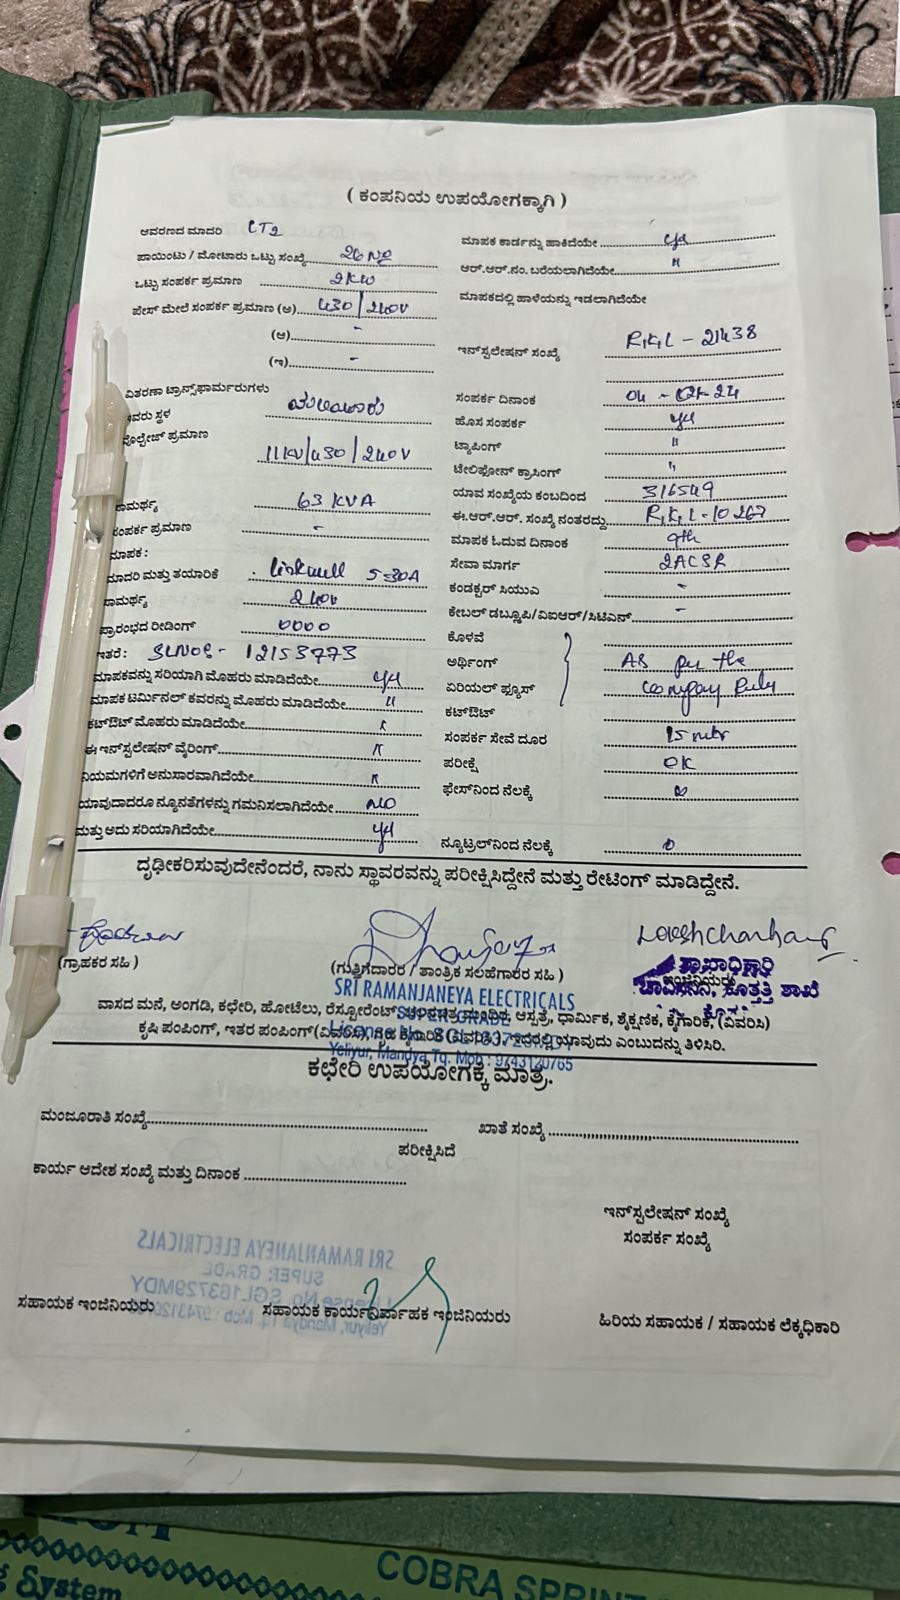 ( ಕಂಪನಿಯ ಉಪಯೋಗಕ್ಕಾಗಿ )
ಆವರಣದ ಮಾದರಿ LT2
ಪಾಯಿಂಟು / ಮೋಟಾರು ಒಟ್ಟು ಸಂಖ್ಯೆ 26 No
ಒಟ್ಟು ಸಂಪರ್ಕ ಪ್ರಮಾಣ 2KW
ಪೇಸ್ ಮೇಲೆ ಸಂಪರ್ಕ ಪ್ರಮಾಣ (ಅ) 430/240V
(ಆ) -
(ಇ) -
ವಿತರಣಾ ಟ್ರಾನ್ಸ್‌ಫಾರ್ಮರುಗಳು
ಸ್ಥಳ
ವೋಲ್ಟೇಜ್ ಪ್ರಮಾಣ
11KV/430/240V
ಸಾಮರ್ಥ್ಯ 63 KVA
ಸಂಪರ್ಕ ಪ್ರಮಾಣ -
ಮಾಪಕ :
ಮಾದರಿ ಮತ್ತು ತಯಾರಿಕೆ Linkwell 5-30A
ಸಾಮರ್ಥ್ಯ 240V
ಪ್ರಾರಂಭದ ರೀಡಿಂಗ್ 0000
ಇತರೆ : SLNO:- 12153773
ಮಾಪಕವನ್ನು ಸರಿಯಾಗಿ ಮೊಹರು ಮಾಡಿದೆಯೇ yes
ಮಾಪಕ ಟರ್ಮಿನಲ್ ಕವರನ್ನು ಮೊಹರು ಮಾಡಿದೆಯೇ "
ಕಟ್‌ಔಟ್ ಮೊಹರು ಮಾಡಿದೆಯೇ "
ಈ ಇನ್‌ಸ್ಟಲೇಷನ್ ವೈರಿಂಗ್ "
ನಿಯಮಗಳಿಗೆ ಅನುಸಾರವಾಗಿದೆಯೇ "
ಯಾವುದಾದರೂ ನ್ಯೂನತೆಗಳನ್ನು ಗಮನಿಸಲಾಗಿದೆಯೇ NO
ಮತ್ತು ಅದು ಸರಿಯಾಗಿದೆಯೇ yes
ಮಾಪಕ ಕಾರ್ಡನ್ನು ಹಾಕಿದೆಯೇ yes
ಆರ್.ಆರ್.ನಂ. ಬರೆಯಲಾಗಿದೆಯೇ "
ಮಾಪಕದಲ್ಲಿ ಹಾಳೆಯನ್ನು ಇಡಲಾಗಿದೆಯೇ
ಇನ್‌ಸ್ಟಲೇಷನ್ ಸಂಖ್ಯೆ RKL - 21438
ಸಂಪರ್ಕ ದಿನಾಂಕ
ಹೊಸ ಸಂಪರ್ಕ yes
ಟ್ಯಾಪಿಂಗ್ "
ಟೇಲಿಫೋನ್ ಕ್ರಾಸಿಂಗ್ "
ಯಾವ ಸಂಖ್ಯೆಯ ಕಂಬದಿಂದ 316549
ಈ.ಆರ್.ಆರ್. ಸಂಖ್ಯೆ ನಂತರದ್ದು RKL-10267
ಮಾಪಕ ಓದುವ ದಿನಾಂಕ 9th
ಸೇವಾ ಮಾರ್ಗ 2ACSR
ಕಂಡಕ್ಟರ್ ಸಿಯುಎ -
ಕೇಬಲ್ ಡಬ್ಲೂಪಿ/ವಿಐಆರ್/ಸಿಟಿಎಸ್ -
ಕೊಳವೆ
ಅರ್ಥಿಂಗ್ As per the
ಏರಿಯಲ್ ಫ್ಯೂಸ್ Company Rules
ಕಟ್‌ಔಟ್
ಸಂಪರ್ಕ ಸೇವೆ ದೂರ 15 mtr
ಪರೀಕ್ಷೆ OK
ಫೇಸ್‌ನಿಂದ ನೆಲಕ್ಕೆ ∞
ನ್ಯೂಟ್ರಲ್‌ನಿಂದ ನೆಲಕ್ಕೆ 0
ದೃಢೀಕರಿಸುವುದೇನೆಂದರೆ, ನಾನು ಸ್ಥಾವರವನ್ನು ಪರೀಕ್ಷಿಸಿದ್ದೇನೆ ಮತ್ತು ರೇಟಿಂಗ್ ಮಾಡಿದ್ದೇನೆ.
(ಗ್ರಾಹಕರ ಸಹಿ )
(ಗುತ್ತಿಗೆದಾರರ / ತಾಂತ್ರಿಕ ಸಲಹೆಗಾರರ ಸಹಿ )
ಶಾಖಾಧಿಕಾರಿ
ಕೊತ್ತತ್ತಿ ಶಾಖೆ
SRI RAMANJANEYA ELECTRICALS
SUPER GRADE
License No. SGL163729MDY
Yeliyur, Mandya Tq. Mob : 9743120765
ವಾಸದ ಮನೆ, ಅಂಗಡಿ, ಕಛೇರಿ, ಹೋಟೆಲು, ರೆಸ್ಟೋರೆಂಟ್, ಚಲನಚಿತ್ರ ಮಂದಿರ, ಆಸ್ಪತ್ರೆ, ಧಾರ್ಮಿಕ, ಶೈಕ್ಷಣಿಕ, ಕೈಗಾರಿಕೆ, (ವಿವರಿಸಿ)
ಕೃಷಿ ಪಂಪಿಂಗ್, ಇತರ ಪಂಪಿಂಗ್(ವಿವರಿಸಿ), ಗೃಹ ಕೈಗಾರಿಕೆ (ವಿವರಿಸಿ), ಇವರಲ್ಲಿ ಯಾವುದು ಎಂಬುದನ್ನು ತಿಳಿಸಿರಿ.
ಕಛೇರಿ ಉಪಯೋಗಕ್ಕೆ ಮಾತ್ರ.
ಮಂಜೂರಾತಿ ಸಂಖ್ಯೆ
ಖಾತೆ ಸಂಖ್ಯೆ
ಪರೀಕ್ಷಿಸಿದೆ
ಕಾರ್ಯ ಆದೇಶ ಸಂಖ್ಯೆ ಮತ್ತು ದಿನಾಂಕ
ಇನ್‌ಸ್ಟಲೇಷನ್ ಸಂಖ್ಯೆ
ಸಂಪರ್ಕ ಸಂಖ್ಯೆ
ಸಹಾಯಕ ಇಂಜಿನಿಯರು
ಸಹಾಯಕ ಕಾರ್ಯನಿರ್ವಾಹಕ ಇಂಜಿನಿಯರು
ಹಿರಿಯ ಸಹಾಯಕ / ಸಹಾಯಕ ಲೆಕ್ಕಧಿಕಾರಿ
COBRA SPRIN
System